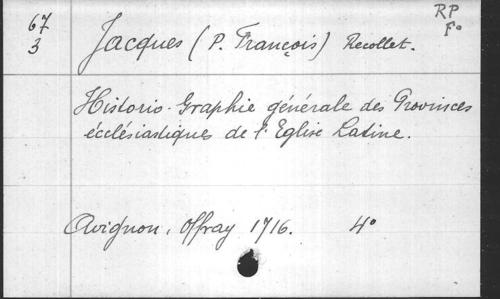 67
3
Jacques (P. François) Recollet.
RP
F°
Historio-Graphie générale des Provinces
écclésiastiques de l'Eglise Latine.
Avignon, Offray 1716. 4°